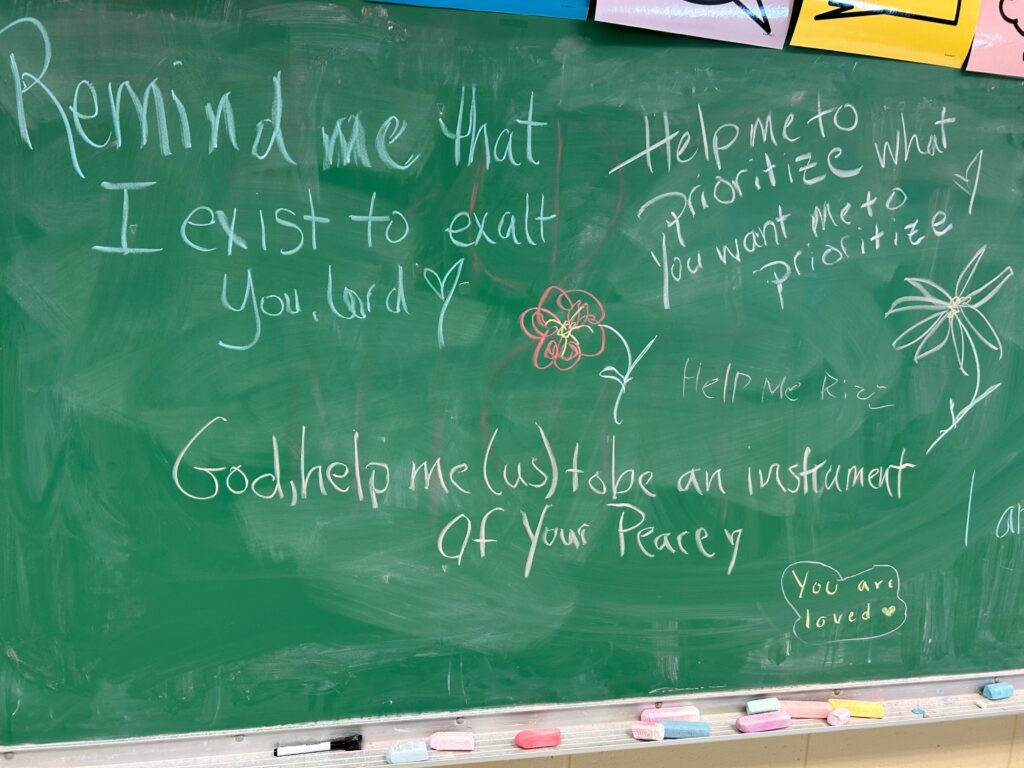 Remind me that
I exist to exalt
You, lord
Help me to
prioritize what
You want me to
prioritize
Help Me Rizz
God, help me (us) to be an instrument
Of Your Peace
You are
loved
I